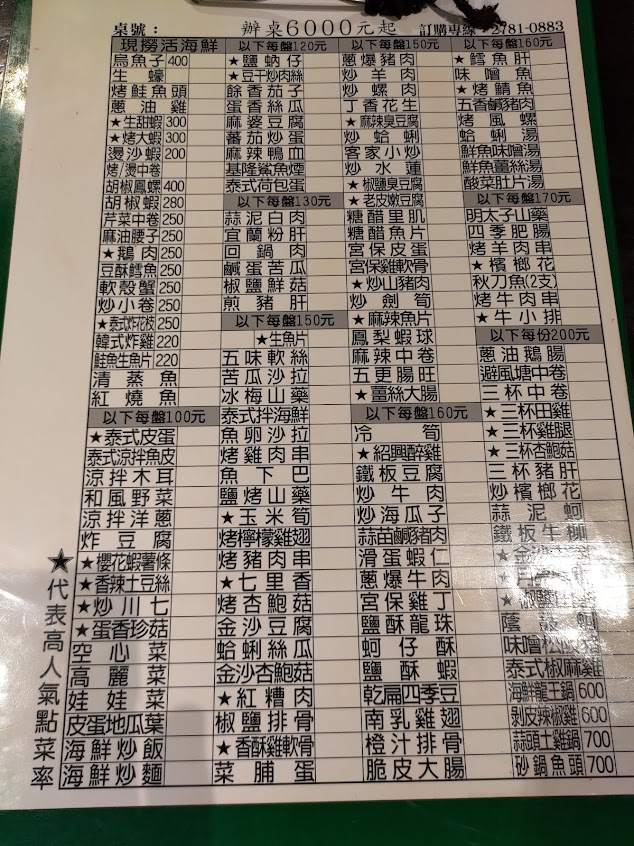 桌號：
辦桌6000元起
訂購專線：2781-0883
現撈活海鮮
烏魚子 400
生蠔
烤鮭魚頭
蔥油雞
★生甜蝦 300
★烤大蝦 300
燙沙蝦 200
烤/燙中卷
胡椒鳳螺 400
胡椒蝦 280
芹菜中卷 250
麻油腰子 250
★鵝肉 250
豆酥鱈魚 250
軟殼蟹 250
炒小卷 250
★泰式炸花枝 250
韓式炸雞 220
鮭魚生魚片 220
清蒸魚
紅燒魚
以下每盤100元
★泰式皮蛋
泰式涼拌魚皮
涼拌木耳
和風野菜
涼拌洋蔥
炸豆腐
★櫻花蝦薯條
★香辣土豆絲
★炒川七
★蛋香珍菇
空心菜
高麗菜
娃娃菜
皮蛋地瓜葉
海鮮炒飯
海鮮炒麵
以下每盤120元
★鹽蚋仔
★豆干炒肉絲
餘香茄子
蛋香絲瓜
麻婆豆腐
蕃茄炒蛋
麻辣鴨血
基隆鯊魚煙
泰式荷包蛋
以下每盤130元
蒜泥白肉
宜蘭粉肝
回鍋肉
鹹蛋苦瓜
椒鹽鮮菇
煎豬肝
以下每盤150元
★生魚片
五味軟絲
苦瓜沙拉
冰梅山藥
泰式拌海鮮
魚卵沙拉
烤雞肉串
魚下巴
鹽烤山藥
★玉米筍
烤檸檬雞翅
烤豬肉串
★七里香
烤杏鮑菇
金沙豆腐
蛤蜊絲瓜
金沙杏鮑菇
★紅糟肉
椒鹽排骨
★香酥雞軟骨
菜脯蛋
以下每盤150元
蔥爆豬肉
炒羊肉
炒螺肉
丁香花生
★麻辣臭豆腐
炒蛤蜊
客家小炒
炒水蓮
★椒鹽臭豆腐
★老皮嫩豆腐
糖醋里肌
糖醋魚片
宮保皮蛋
宮保雞軟骨
★炒山豬肉
炒劍筍
★麻辣魚片
鳳梨蝦球
麻辣中卷
五更腸旺
★薑絲大腸
以下每盤160元
冷筍
★紹興醉雞
鐵板豆腐
炒牛肉
炒海瓜子
蒜苗鹹豬肉
滑蛋蝦仁
蔥爆牛肉
宮保雞丁
鹽酥龍珠
蚵仔酥
鹽酥蝦
乾扁四季豆
南乳雞翅
橙汁排骨
脆皮大腸
以下每盤160元
★鱈魚肝
味噌魚
★烤鯖魚
五香鹹豬肉
烤風螺
蛤蜊湯
鮮魚味噌湯
鮮魚薑絲湯
酸菜肚片湯
以下每盤170元
明太子山藥
四季肥腸
烤羊肉串
★檳榔花
秋刀魚(2支)
烤牛肉串
★牛小排
以下每份200元
蔥油鵝腸
避風塘中卷
三杯中卷
★三杯田雞
★三杯雞腿
★三杯杏鮑菇
三杯豬肝
炒檳榔花
蒜泥蚵
鐵板牛柳
★金沙
★
★椒鹽
蔭
味噌松
泰式椒麻雞
海鮮龍王鍋 600
剝皮辣椒雞 600
蒜頭土雞鍋 700
砂鍋魚頭 700
★代表高人氣點菜率